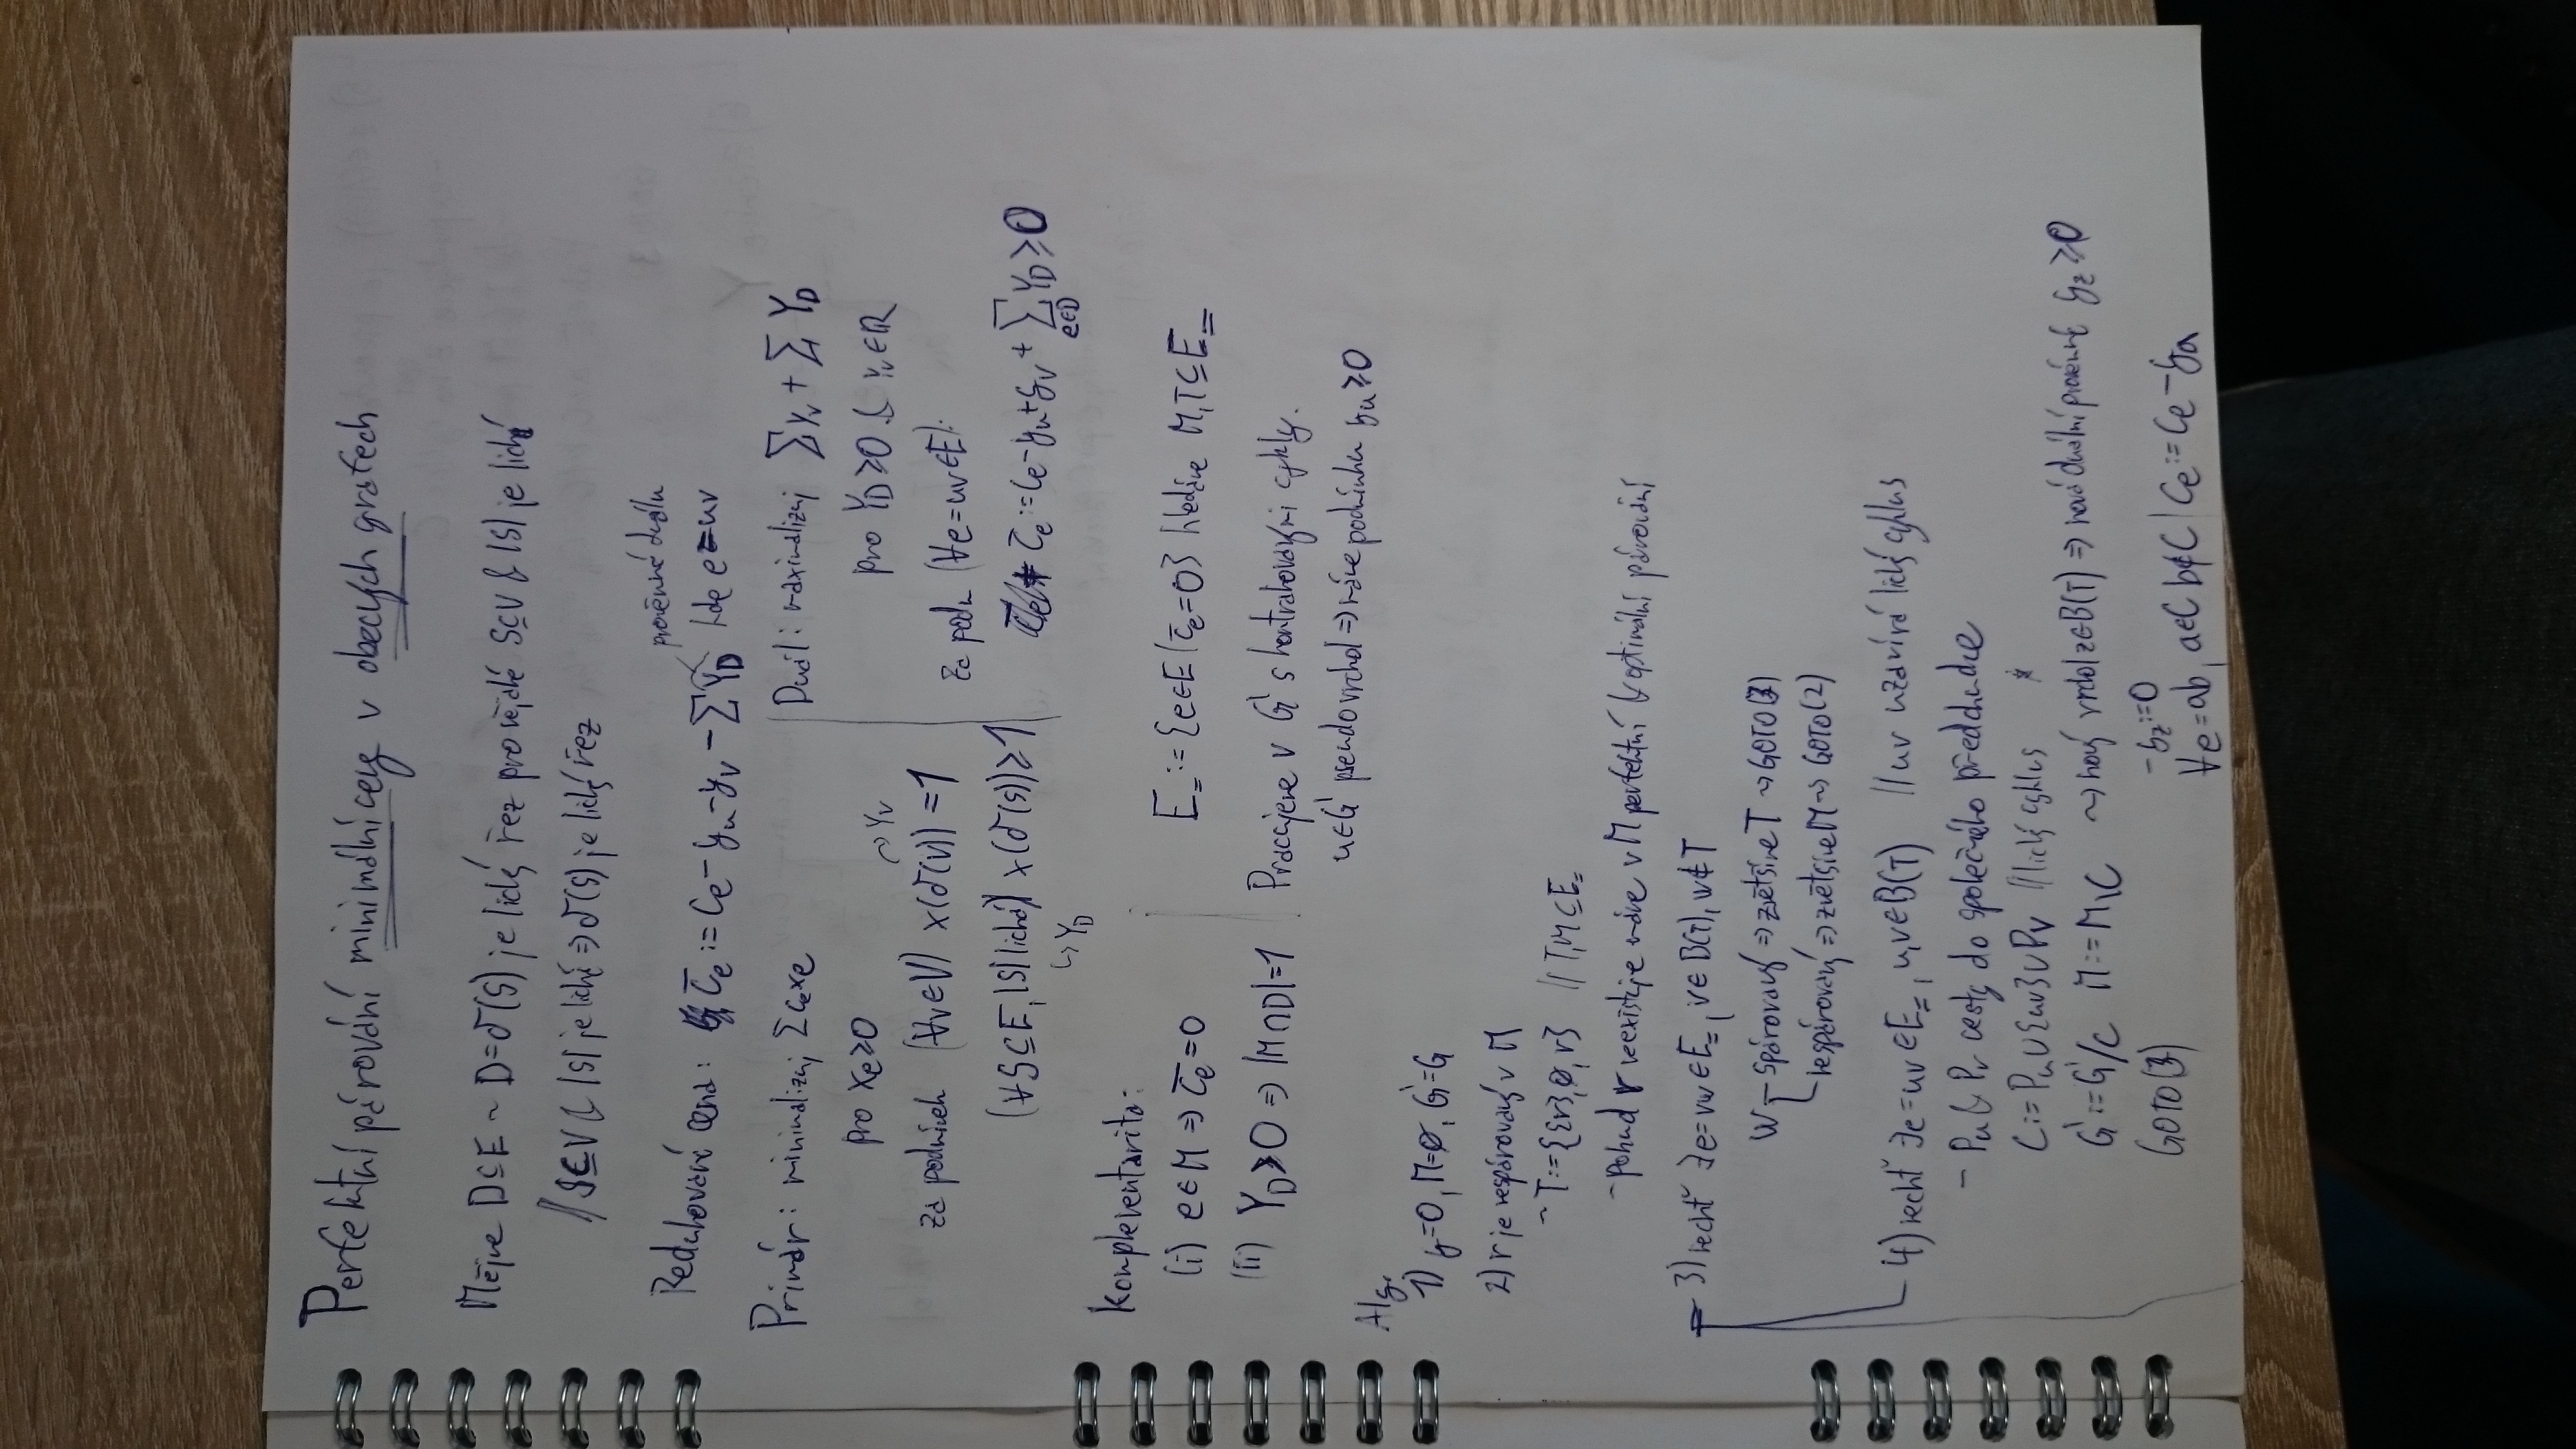 Perfektní párování minimální ceny v obecných grafech
Mějme D⊆E ~ D=δ(S) je lichý řez pro nějaké S⊆V & |S| je liché
// S⊆V & |S| je liché ⇒ δ(S) je lichý řez
proměnné duálu
Redukovaná cena: c̄e := ce - yu - yv - ∑YD kde e=uv
Primár: minimalizuj ∑cexe
pro xe≥0
za podmínek (∀v∈V) x(δ(v))=1 ~> yv
(∀S⊆E, |S| lichá) x(δ(S))≥1
↳ YD
Duál: maximalizuj ∑yv + ∑YD
pro YD≥0 & yv∈ℝ
za podm (∀e=uv∈E):
c̄e := ce - yu + yv + ∑ YD ≥ 0
e∈D
Komplementarita:
(i) e∈M ⇒ c̄e=0
(ii) YD>0 ⇒ |M∩D|=1
E= := {e∈E | c̄e=0} hledáme M,T⊆E=
Pracujeme v G' s kontrahovanými cykly.
u∈G' pseudovrchol ⇒ máme podmínku yu≥0
Alg.
1) y=0, M=∅, G'=G
2) r je nespárovaný v M
- T:={{r},∅,r} // T,M⊆E=
- pokud r neexistuje máme v M perfektní & optimální párování
3) nechť ∃e=vw∈E=, v∈B(T), w∉T
w spárovaný ⇒ zvětšíme T ~> GOTO(3)
nespárovaný ⇒ zvětšíme M ~> GOTO(2)
4) nechť ∃e=uv∈E=, u,v∈B(T) // uv uzavírá lichý cyklus
- Pu & Pv cesty do společného předchůdce
C:=Pu∪{uv}∪Pv // lichý cyklus *
G':=G'/C M:=M\C ~> nový vrchol z∈B(T) ⇒ nová duální proměnná yz≥0
- yz:=0
GOTO(3) ∀e=ab, a∈C b∉C | ce:=ce-ya